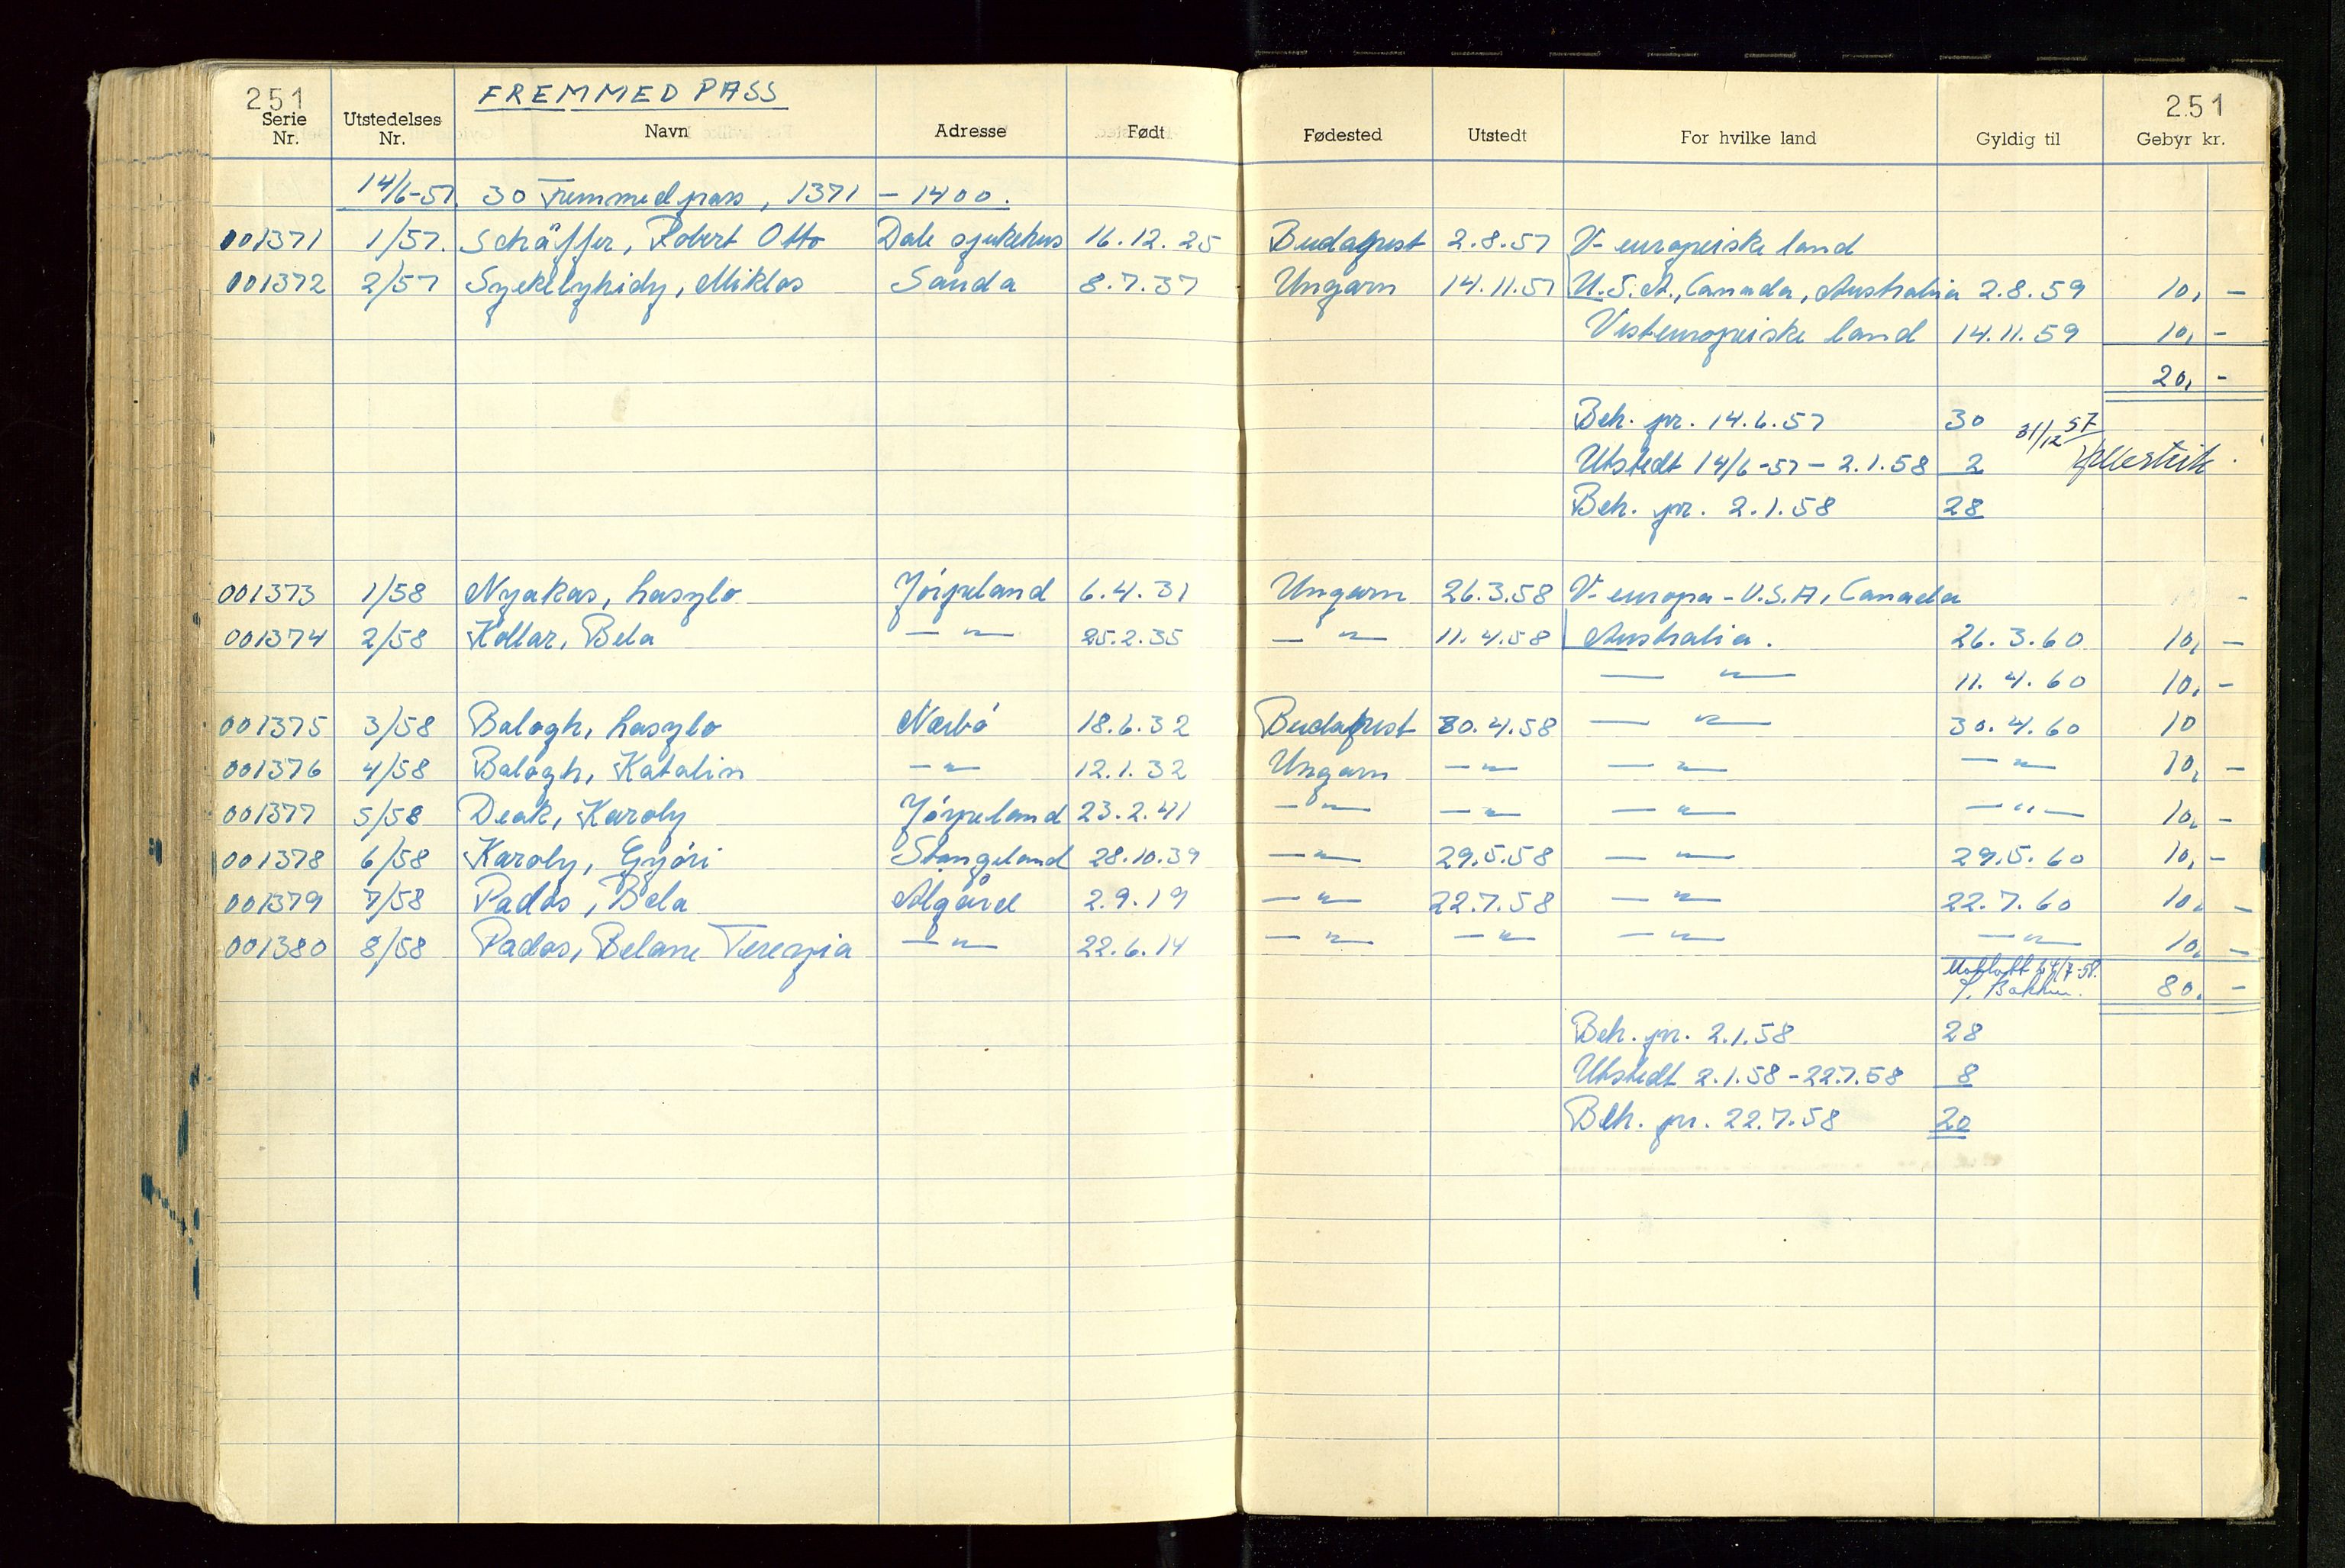 251 FREMMED PASS 251
Serie Nr. Utstedelses Nr. Navn Adresse Født Fødested Utstedt For hvilke land Gyldig til Gebyr kr.
14/6-57. 30 Fremmedpass, 1371 - 1400.
001371 1/57. Schäffer, Robert Otto Dale sjukehus 16.12.25 Budapest 2.8.57 V- europeiske land
001372 2/57 Szekelyhidy, Miklos Sanda 8.7.37 Ungarn 14.11.57 U.S.A., Canada, Australia 2.8.59 10, -
Vesteuropeiske land 14.11.59 10, -
20, -
Beh. pr. 14.6.57 30 31/12 57
Utstedt 14/6-57 - 2.1.58 2
Beh. pr. 2.1.58 28
001373 1/58 Nyakas, Laszlo Jörpeland 6.4.31 Ungarn 26.3.58 V- europa - U.S.A, Canada -
001374 2/58 Kollar, Bela — " — 25.2.35 — " — 11.4.58 Australia. 26.3.60 10, -
— " — 11.4.60 10, -
001375 3/58 Balogh, Laszlo Nærbö 18.6.32 Budapest 30.4.58 — " — 30.4.60 10
001376 4/58 Balogh, Katalin — " — 12.1.32 Ungarn — " — — " — — " — 10, -
001377 5/58 Deak, Karoly Jörpeland 23.2.41 — " — — " — — " — — " — 10, -
001378 6/58 Karoly, Györi Stangeland 28.10.39 — " — 29.5.58 — " — 29.5.60 10, -
001379 7/58 Pados, Bela Ålgård 2.9.19 — " — 22.7.58 — " — 22.7.60 10, -
001380 8/58 Pados, Belane Terezia — " — 22.6.14 — " — — " — — " — — " — 10, -
Mottatt 24/7-58. 80, -
Beh. pr. 2.1.58 28
Utstedt 2.1.58 - 22.7.58 8
Beh. pr. 22.7.58 20